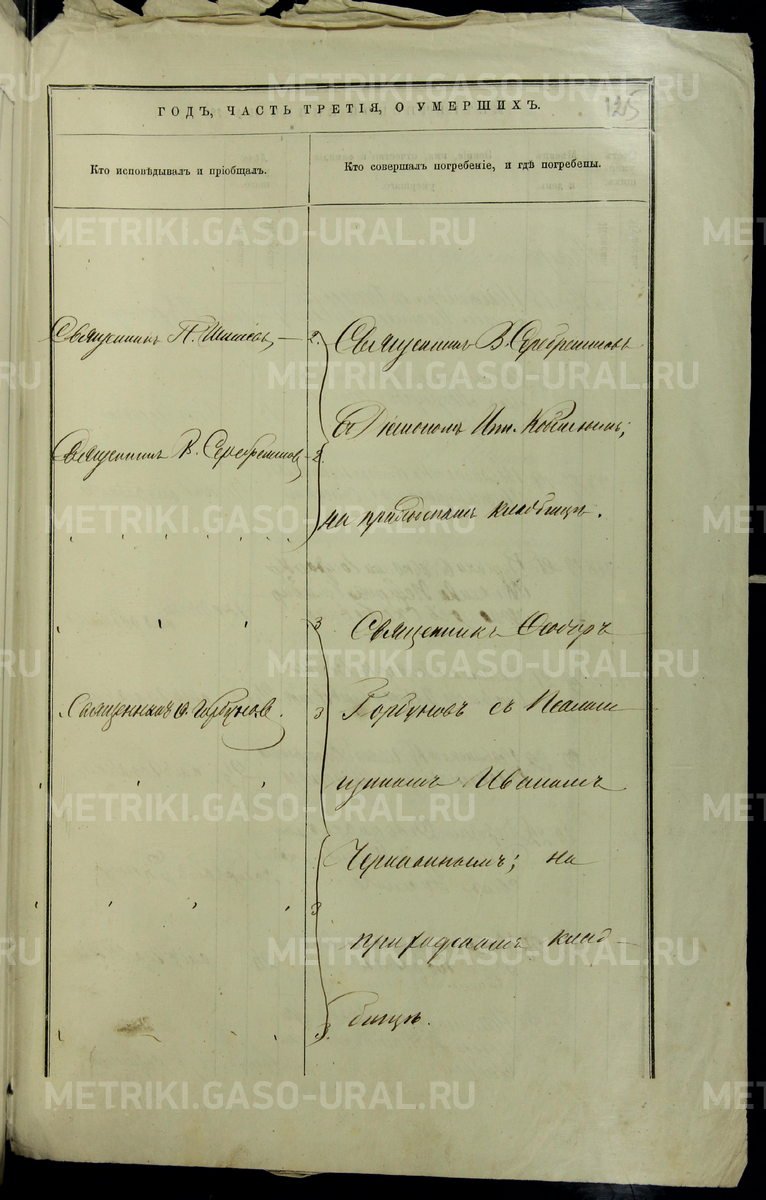 125
ГОДЪ, ЧАСТЬ ТРЕТІЯ, О УМЕРШИХЪ.
Кто исповѣдывалъ и пріобщалъ.
Кто совершалъ погребеніе, и гдѣ погребены.
Священникъ П.
2.
Священникъ В. Серебренниковъ
Священникъ В. Серебренниковъ
2.
съ Діакономъ Ипп.
на приходскомъ кладбищѣ.
3
Священникъ Ѳеодоръ
Священникъ Ѳ. Горбуновъ.
3
Горбуновъ съ Псалом
щикомъ Иваномъ
на
3
приходскомъ клад-
3.
бищѣ.
METRIKI.GASO-URAL.RU